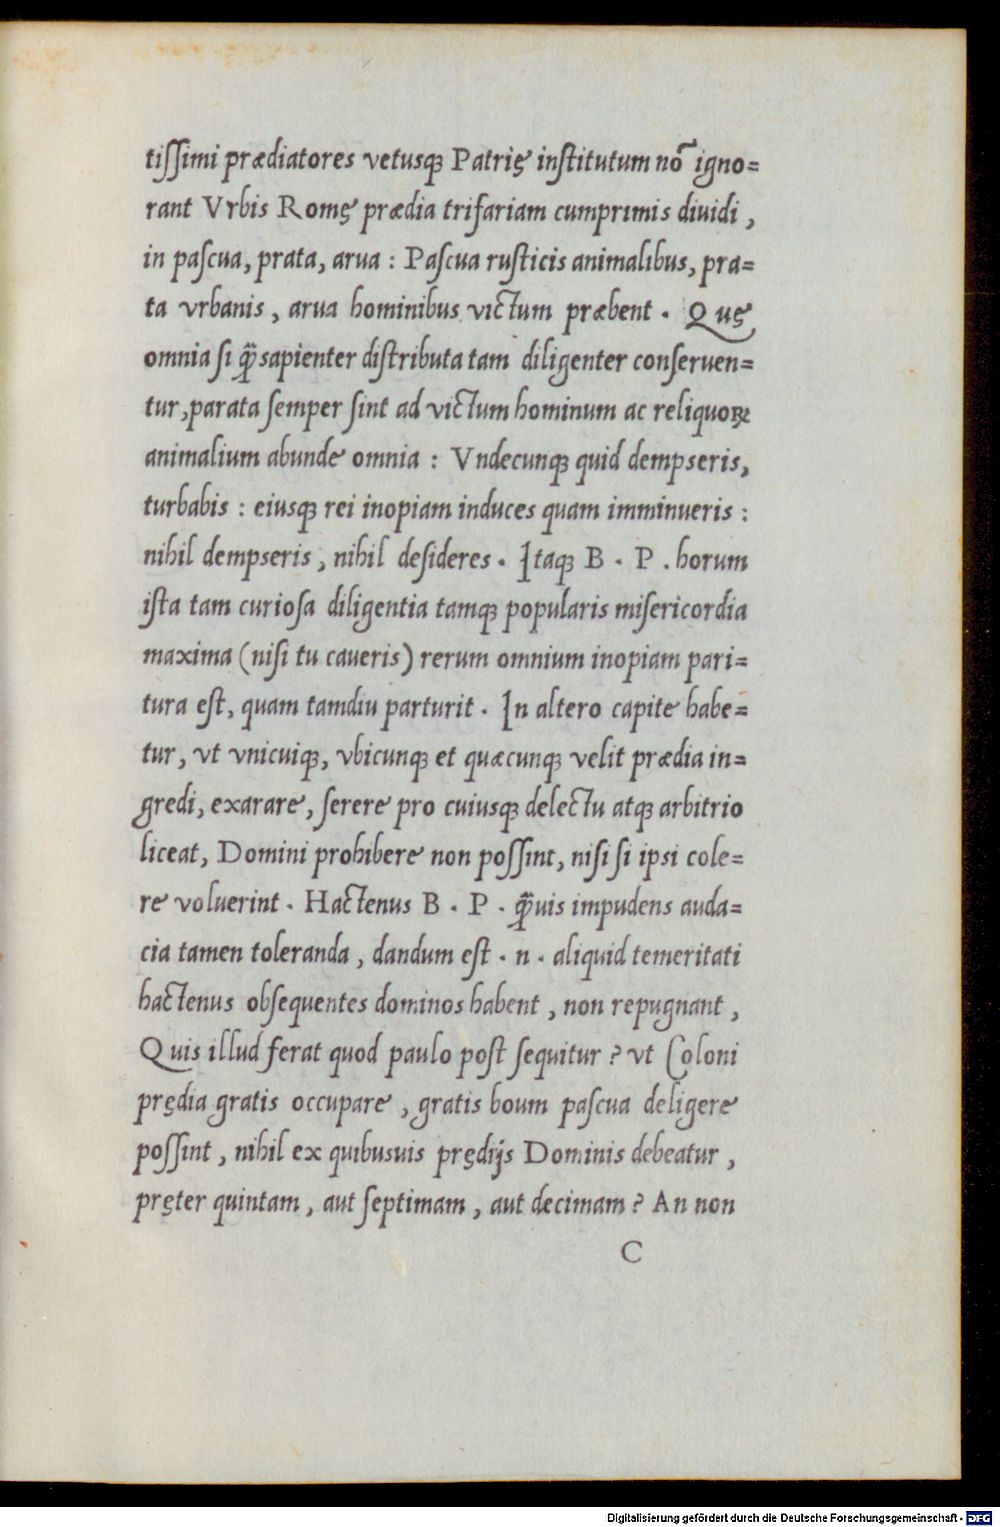 tiſſimi prædiatores vetusqꝫ Patrię inſtitutum nō igno=
rant Vrbis Romę prædia trifariam cumprimis diuidi ,
in paſcua, prata, arua : Paſcua ruſticis animalibus, pra=
ta vrbanis , arua hominibus victum præbent . Quę
omnia ſi ꝙ̃ sapienter diſtributa tam diligenter conſeruen=
tur, parata ſemper ſint ad victum hominum ac reliquoꝝ
animalium abunde omnia : Vndecunqꝫ quid dempseris,
turbabis : eiusqꝫ rei inopiam induces quam imminueris :
nihil dempseris , nihil deſideres . Itaqꝫ B . P . horum
iſta tam curioſa diligentia tamqꝫ popularis miſericordia
maxima (niſi tu caueris) rerum omnium inopiam pari=
tura eſt, quam tamdiu parturit . In altero capite habe=
tur, vt vnicuiqꝫ, vbicunqꝫ et quæcunqꝫ velit prædia in=
gredi, exarare, ſerere pro cuiusqꝫ delectu atqꝫ arbitrio
liceat, Domini prohibere non poſſint, niſi ſi ipsi cole=
re voluerint . Hactenus B . P . ꝙ̃uis impudens auda=
cia tamen toleranda , dandum eſt . n . aliquid temeritati
hactenus obſequentes dominos habent , non repugnant ,
Quis illud ferat quod paulo poſt ſequitur ? vt Coloni
prędia gratis occupare , gratis boum paſcua deligere
poſſint , nihil ex quibusuis prędijs Dominis debeatur ,
pręter quintam , aut ſeptimam , aut decimam ? An non
C
Digitalisierung gefördert durch die Deutsche Forschungsgemeinschaft - DFG